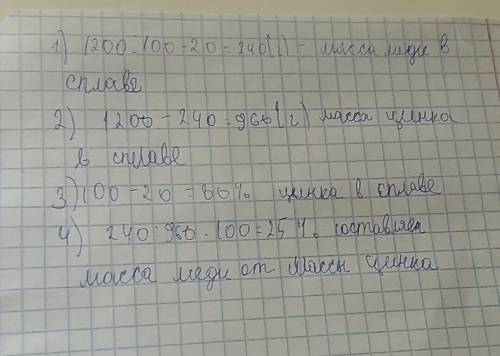 1) 1200:100·20=240(г) - масса меди в
сплаве
2) 1200-240=960(г) масса цинка
в сплаве
3) 100-20=80% цинка в сплаве
4) 240:960·100=25% составляет
масса меди от массы цинка